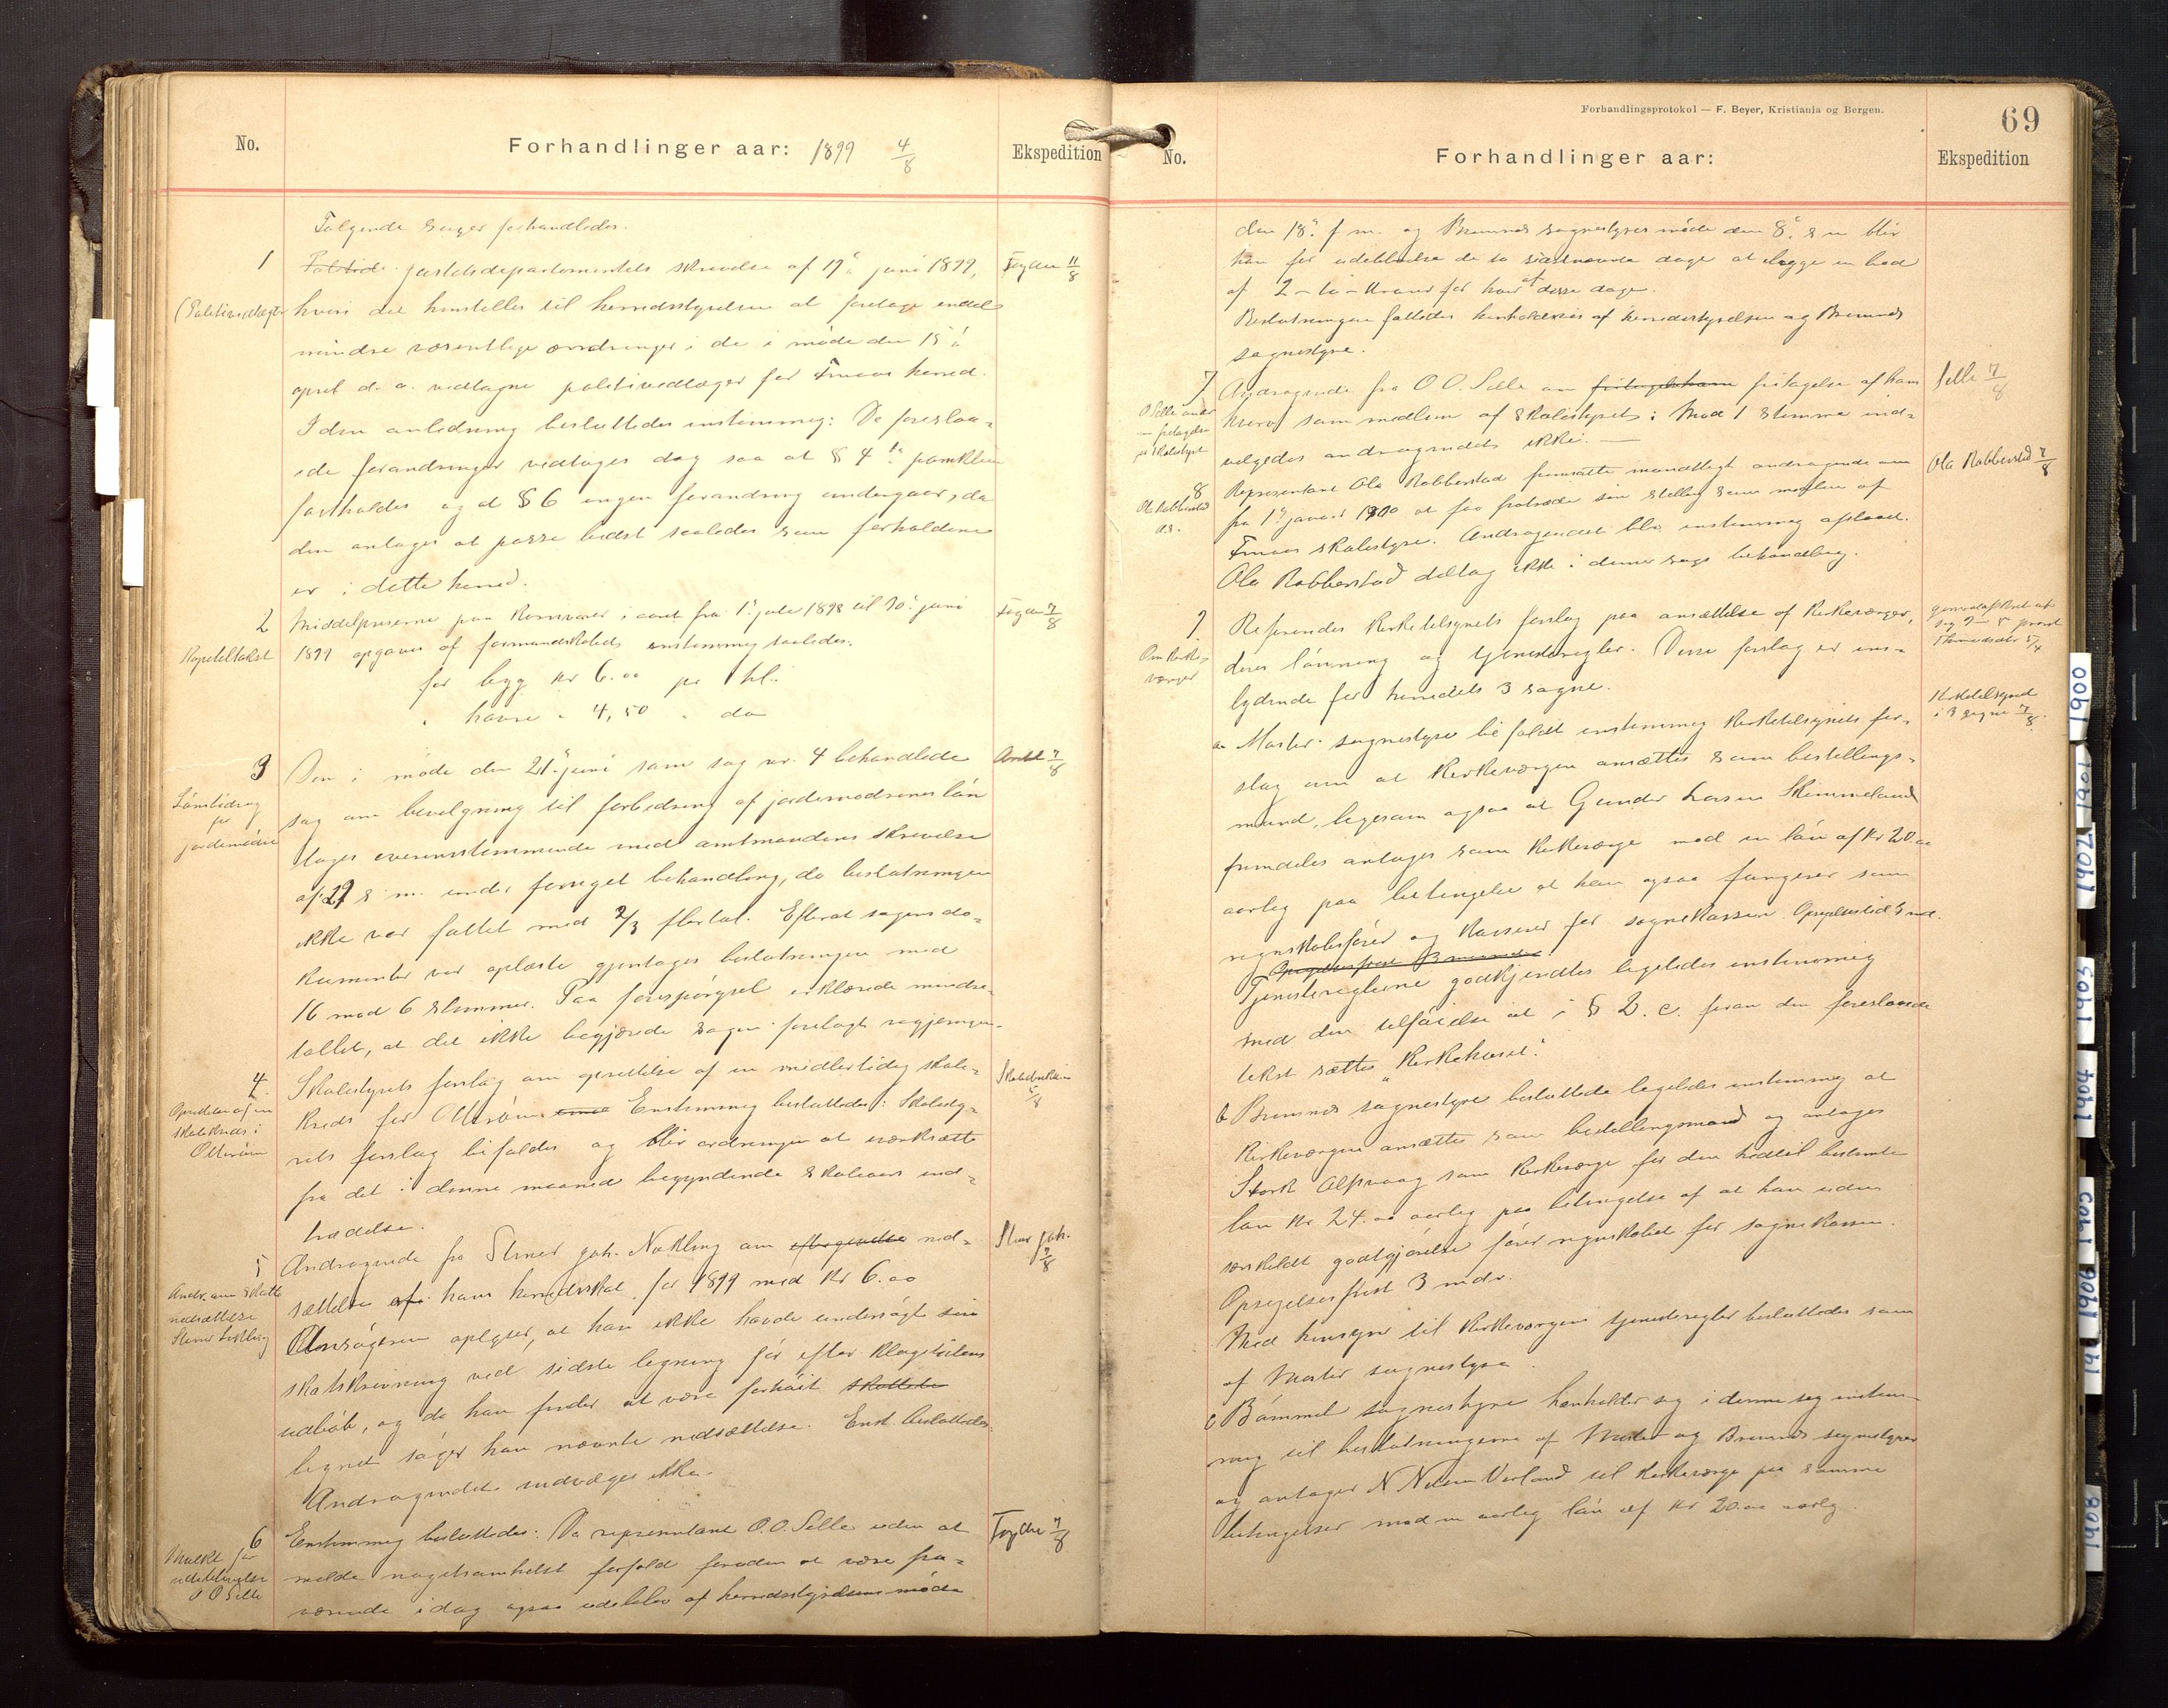 No.
Forhandlinger aar: 1899 4/8
Ekspedition
Følgende sager forhandledes.
1
(Politivedtægter
Justitsdepartementets skrivelse af 19de juni 1899,
hvori det henstilles til herredsstyrelsen at foretage endel
mindre væsentlige ændringer i de i møde den 15de
april d. a. vedtagne politivedtægter for Finaas herred.
I den anledning besluttedes enstemmig: De foreslaa-
ede forandringer vedtages dog saa at § 4
fastholdes og at § 6 ingen forandring undergaar, da
den antages at passe bedst saaledes som forholdene
er i dette herred.
Fogden 11/8
2
Kapiteltakst
Middelpriserne paa kornvarer i aaret fra 1ste juli 1898 til 30te juni
1899 opgaves af formandskabet enstemmig saaledes:
for byg kr 6.00 pr hl.
" havre " 4,50 " do
Fogden 7/8
3
Lønstidrag
for
jordemødre
Den i møde den 21de juni som sag nr. 4 behandlede
sag om bevilgning til forbedring af jordemødrenes løn
toges overensstemmende med amtmandens skrivelse
af 29 s. m. under fornyet behandling, da beslutningen
ikke var fattet med 2/3 flertal. Efterat sagens do-
kumenter var oplæste gjentages beslutningen med
16 mod 6 stemmer. Paa forespørgsel erklærede mindre-
tallet, at det ikke begjærede sagen forelagt regjeringen.
Amtet 7/8
4
Oprettelse af en
skolekreds i
Otterøen
Skolestyrets forslag om oprettelse af en midlertidig skole-
kreds for Otterøen. Enstemmig besluttedes: Skolesty-
rets forslag bifaldes og blir ordningen at iværksætte
fra det i denne maaned begyndende skoleaars ind-
trædelse.
5/8
5
Andr. om skatte
nedsættelse
Andragende fra Stener Joh. Nøkling om eftergivelse ned-
sættelse af hans herredsskat for 1899 med kr 6.00
Ansøgeren oplyser, at han ikke havde undersøgt sin
skatskrivning ved sidste ligning før efter klagetidens
udløb, og da han finder at være forhøit skattet
lignet søger han nævnte nedsættelse. Enst. besluttedes:
Andragendet indvilges ikke.
Joh. 7/8
6
Mulkt for
udeblivelse
O O Selle
Enstemmig besluttedes: Da repræsentant O. O. Selle uden at
melde nogetsomhelst forfald foruden at være fra-
værende idag ogsaa udeblev af herredsstyrelsens møde
Fogden 7/8
Forhandlingsprotokol — F. Beyer, Kristiania og Bergen.
69
No.
Forhandlinger aar:
Ekspedition
den 18de f. m. og Bremnes sognestyres møde den 8de s. m. blir
han for udeblivelse de to sidstnævnte dage at ilægge en bod
af 2 – to – kroner for hver af disse dage.
Beslutningen fattedes henholdsvis af herredsstyrelsen og Bremnes
sognestyre.
7
O Selle andr
fritagelse
Skolestyret
Andragende fra O. O. Selle om fritagelse af hans
hverv som medlem af skolestyret: Mod 1 stemme ind-
vilgedes andragendet ikke. —
Selle 7/8
8
Ola Robberstad
d.s.
Repræsentant Ola Robberstad fremsatte mundtligt andragende om
fra 1ste januar 1900 at faa fratræde sin stilling som medlem af
Finaas skolestyre. Andragendet blev enstemmig afslaaet.
Ola Robberstad deltog ikke i denne sags behandling.
Ola Robberstad 7/8
9
Om kirke-
værger
Refereredes kirketilsynets forslag paa ansættelse af kirkeværger,
deres lønning og tjenesteregler. Disse forslag er ens-
lydende for herredets 3 sogne.
Kirketilsynet
i 3 sogne 7/8
a Moster sognestyre bifaldt enstemmig kirketilsynets for-
slag om at kirkeværgen ansættes som bestillings-
mand, ligesom ogsaa at Gunder Larsen Skimmeland
fremdeles antages som kirkeværge med en løn af kr 20.00
aarlig paa betingelse at han ogsaa fungerer som
regnskabsfører og kasserer for sognekassen. Opsigelsestid 3 md.
Opsigelsesfrist 3 maaneder
Tjenestereglerne godkjendtes ligeledes enstemmig
med den tilføielse at i § 2. c. foran den foreslaaede
tekst sættes "kirkehuset".
b Bremnes sognestyre besluttede ligeledes enstemmig at
kirkeværgen ansættes som bestillingsmand og antages
Stork Alfsvaag som kirkeværge for den hidtil bestemte
løn kr 24.00 aarlig paa betingelse af at han uden
særskilt godtgjørelse fører regnskabet for sognekassen.
Opsigelsesfrist 3 mdr.
Med hensyn til kirkeværgens tjenesteregler besluttedes som
af Moster sognestyre.
c Bømmel sognestyre henholder sig i denne sag enstem-
mig til beslutningerne af Moster og Bremnes sognestyrer
og antager N Nilsen Vorland til kirkeværge paa samme
betingelser med en aarlig løn af kr 20.00 aarlig.
1900
1901
1902
1903
1904
1905
1906
1908